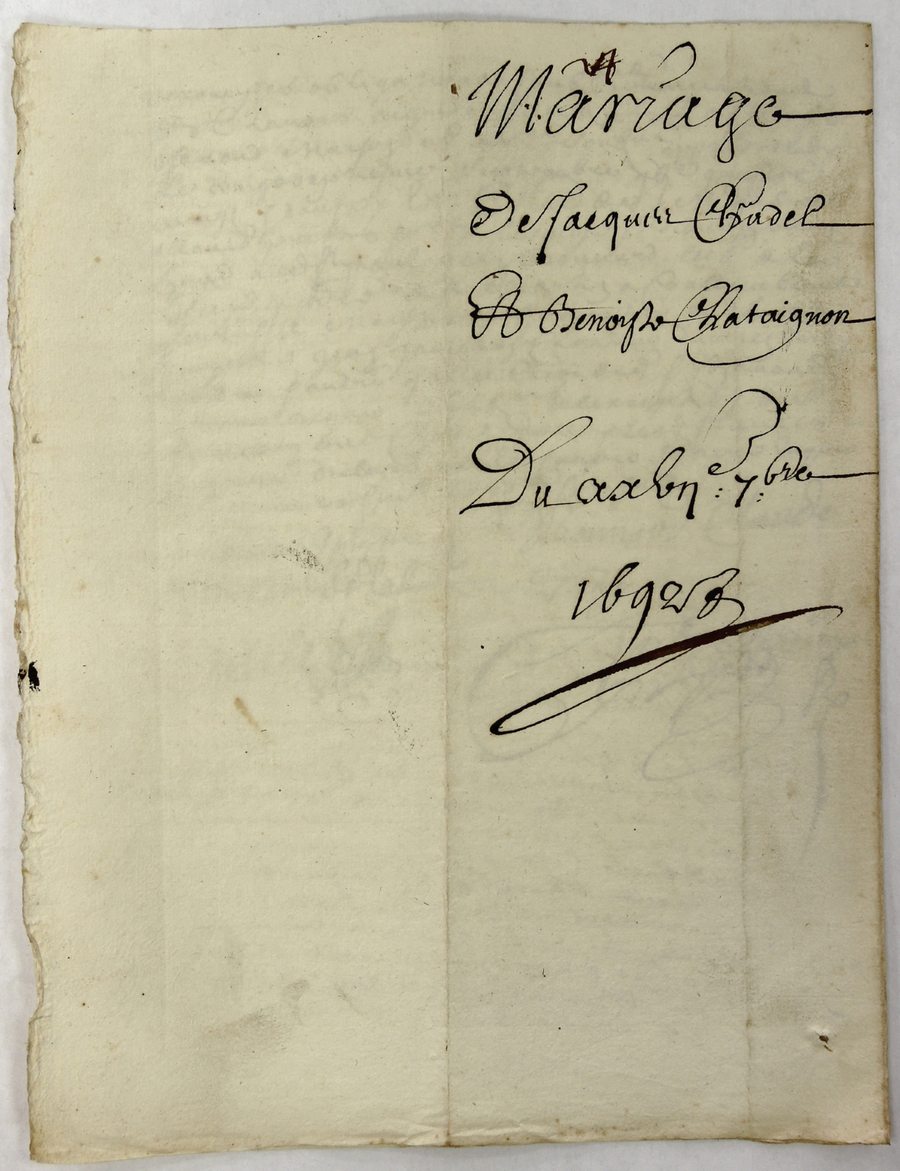 Mariage
De Jacques Chadel
Et Benoiste Chataignon
Du xxbij.e 7.bre
1692